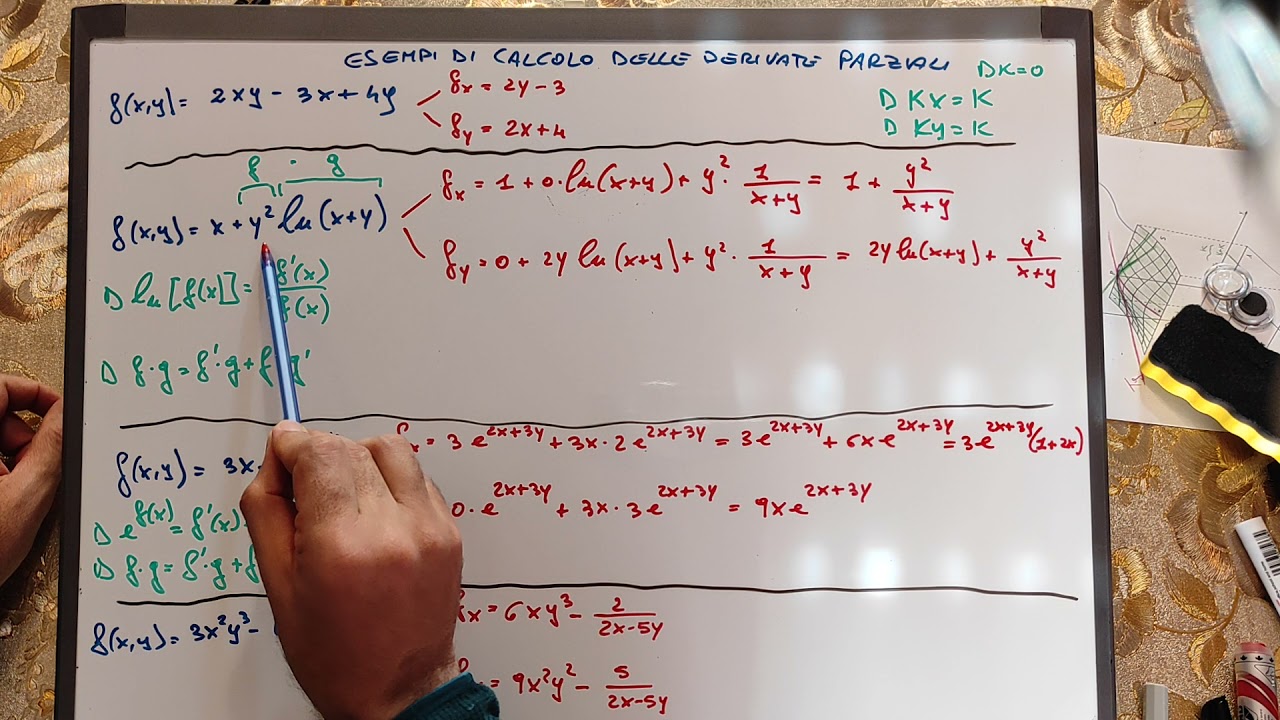 ESEMPI DI CALCOLO DELLE DERIVATE PARZIALI
DK=0
D Kx = K
D Ky = K
f(x,y) = 2xy - 3x + 4y
fx = 2y - 3
fy = 2x + 4
f · g
f(x,y) = x + y² ln(x+y)
fx = 1 + 0·ln(x+y) + y² · 1/(x+y) = 1 + y²/(x+y)
fy = 0 + 2y ln(x+y) + y² · 1/(x+y) = 2y ln(x+y) + y²/(x+y)
D ln[f(x)] = f'(x)/f(x)
D f·g = f'·g + f g'
f(x,y) = 3x
x = 3e^(2x+3y) + 3x·2e^(2x+3y) = 3e^(2x+3y) + 6xe^(2x+3y) = 3e^(2x+3y)(1+2x)
0·e^(2x+3y) + 3x·3e^(2x+3y) = 9xe^(2x+3y)
D e^f(x) = f'(x)
D f·g = f'·g + f
f(x,y) = 3x²y³ -
fx = 6xy³ - 2/(2x-5y)
= 9x²y² - 5/(2x-5y)